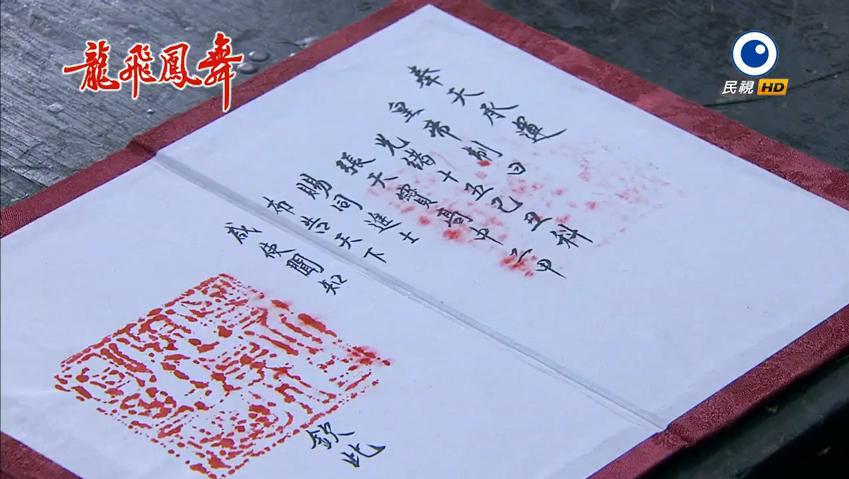 龍飛鳳舞
民視HD
奉天承運
皇帝制曰
光緒十五己丑科
張天寶高中三甲
賜同進士
布告天下
咸使聞知
欽此